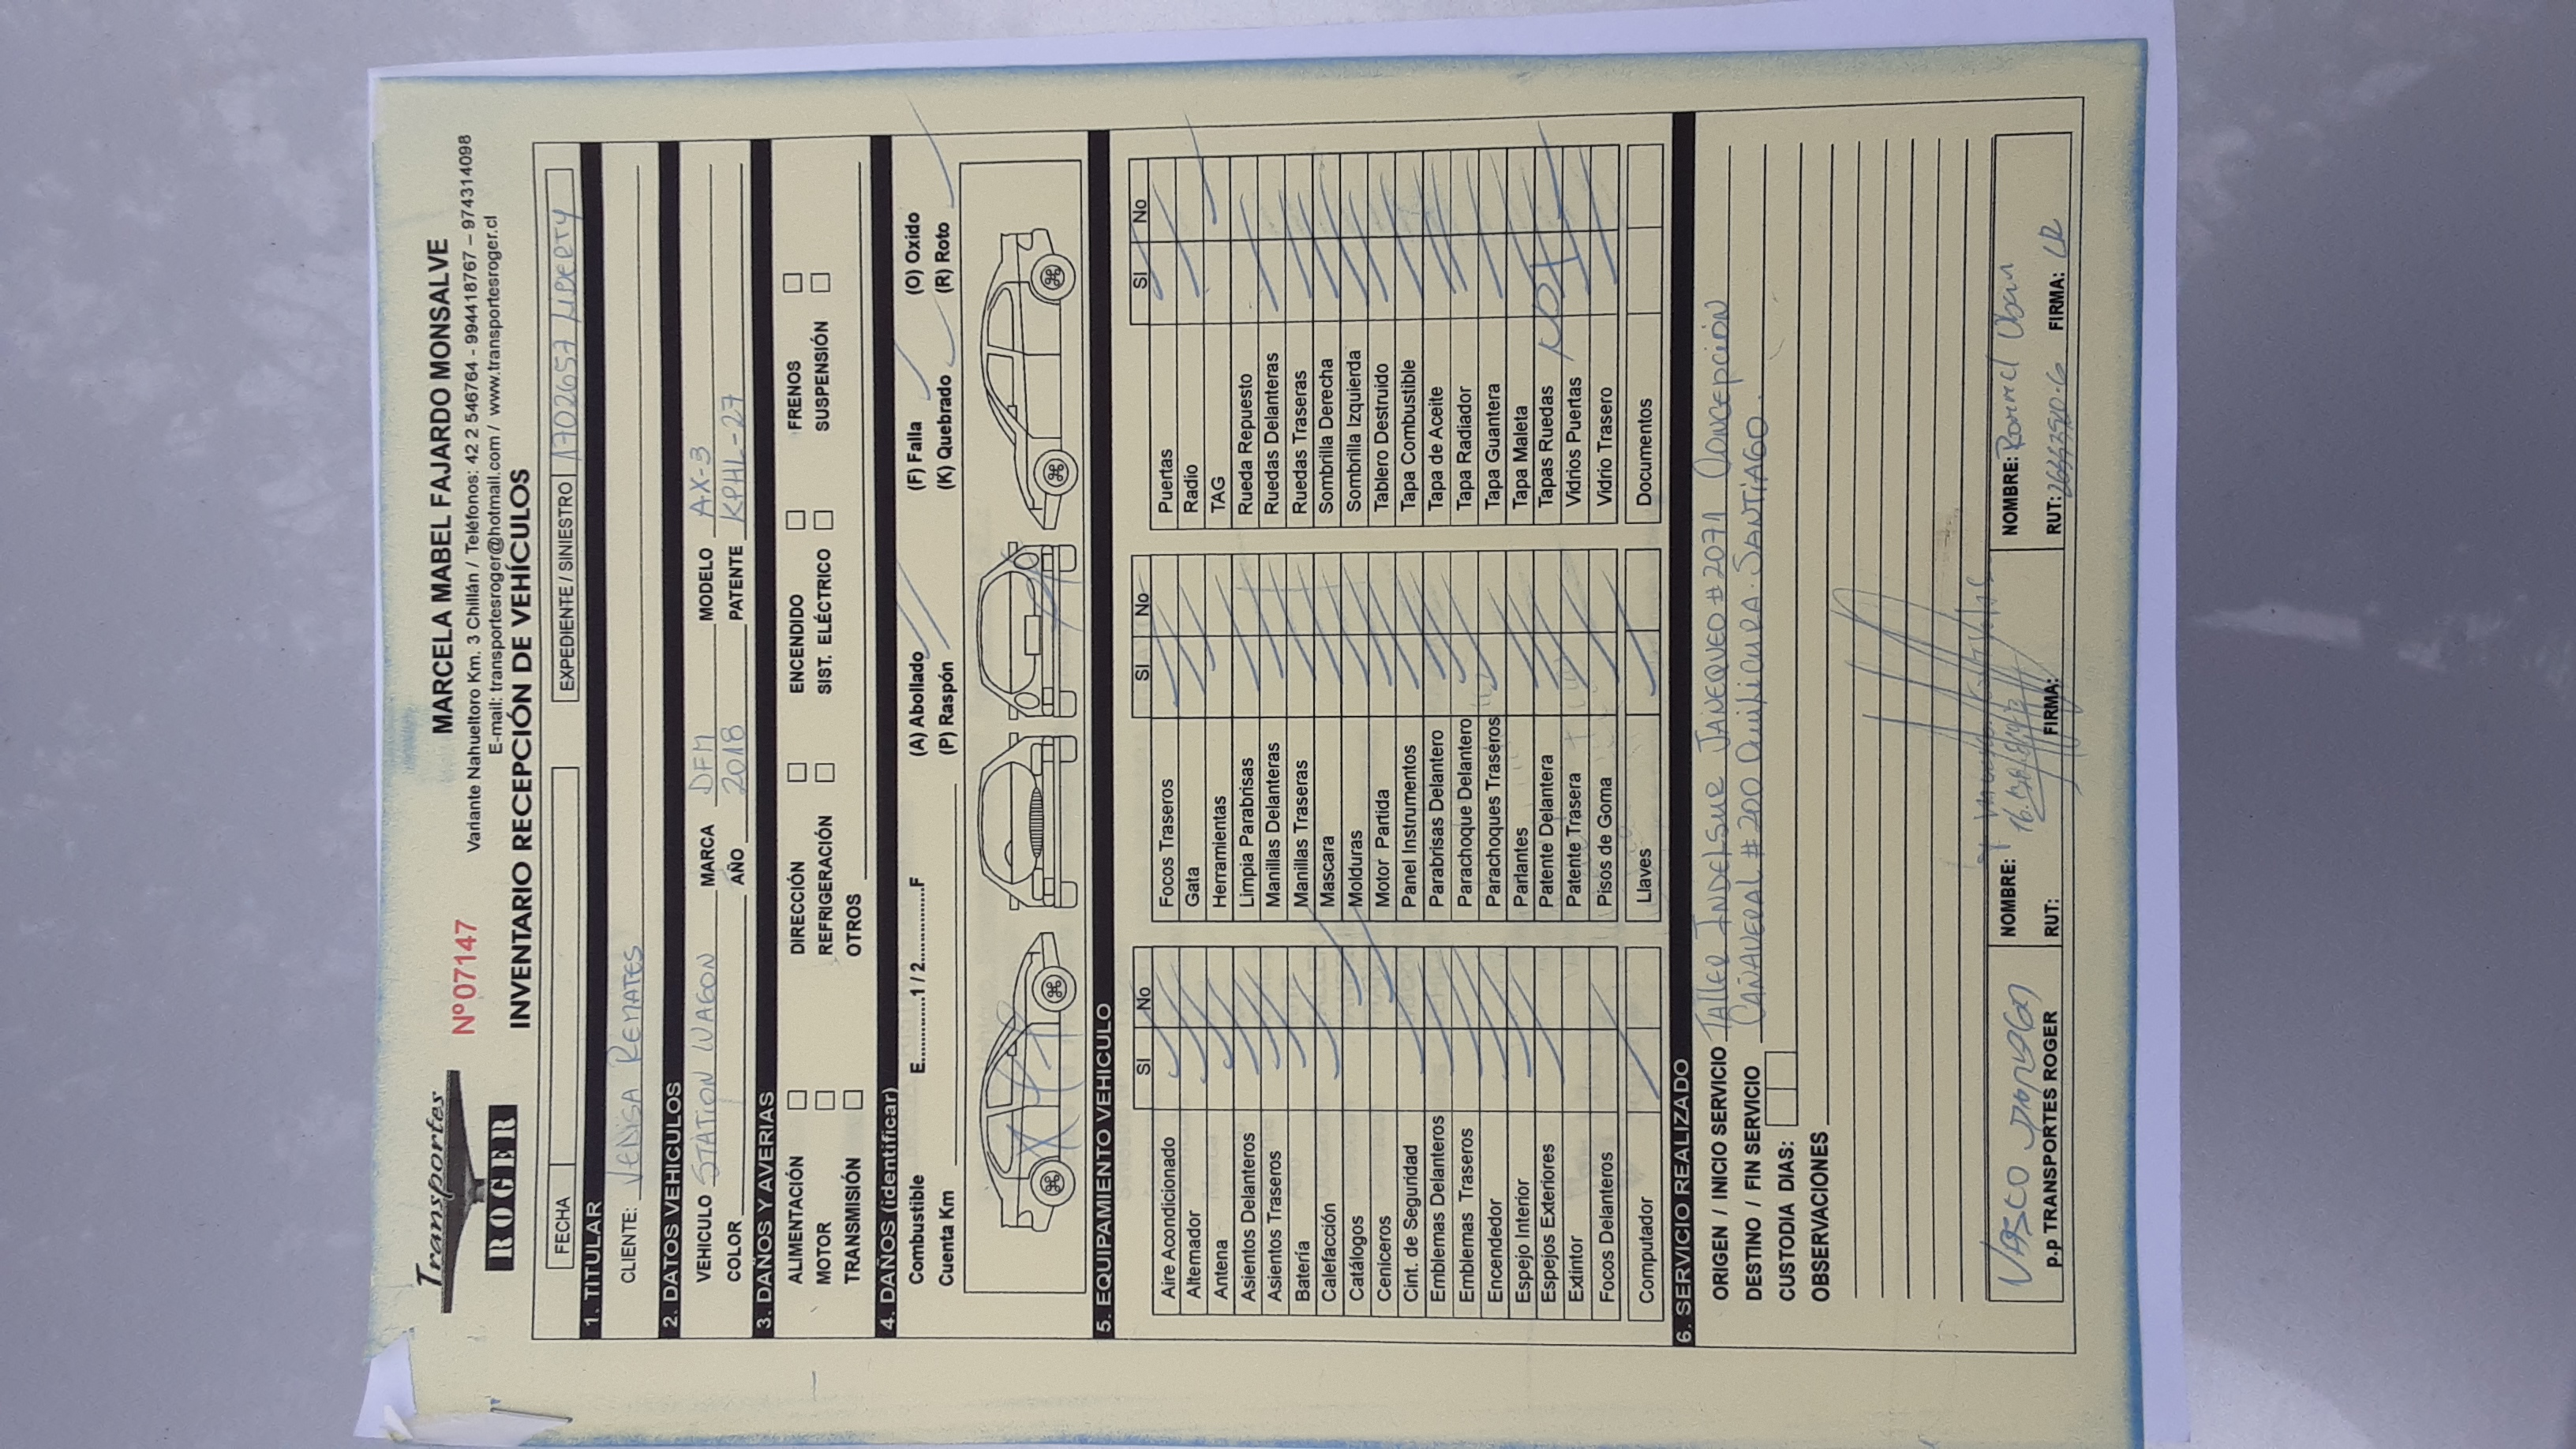 Transportes
ROGER
Nº 07147
MARCELA MABEL FAJARDO MONSALVE
Variante Nahueltoro Km. 3 Chillán / Teléfonos: 42 2 546764 - 994418767 – 974314098
E-mail: transportesroger@hotmail.com / www.transportesroger.cl
INVENTARIO RECEPCIÓN DE VEHÍCULOS
FECHA EXPEDIENTE / SINIESTRO A7026657 LIBERTY
1. TITULAR
CLIENTE: VENSA REMATES
2. DATOS VEHICULOS
VEHICULO STATION WAGON MARCA DFM MODELO AX-3
COLOR AÑO 2018 PATENTE KPHL-27
3. DAÑOS Y AVERIAS
ALIMENTACIÓN DIRECCIÓN ENCENDIDO FRENOS
MOTOR REFRIGERACIÓN SIST. ELÉCTRICO SUSPENSIÓN
TRANSMISIÓN OTROS
4. DAÑOS (identificar)
Combustible E............1 / 2............F (A) Abollado (F) Falla (O) Oxido
Cuenta Km (P) Raspón (K) Quebrado (R) Roto
5. EQUIPAMIENTO VEHICULO
SI No SI No SI No
Aire Acondicionado Focos Traseros Puertas
Alternador Gata Radio
Antena Herramientas TAG
Asientos Delanteros Limpia Parabrisas Rueda Repuesto
Asientos Traseros Manillas Delanteras Ruedas Delanteras
Batería Manillas Traseras Ruedas Traseras
Calefacción Mascara Sombrilla Derecha
Catálogos Molduras Sombrilla Izquierda
Ceniceros Motor Partida Tablero Destruido
Cint. de Seguridad Panel Instrumentos Tapa Combustible
Emblemas Delanteros Parabrisas Delantero Tapa de Aceite
Emblemas Traseros Parachoque Delantero Tapa Radiador
Encendedor Parachoques Traseros Tapa Guantera
Espejo Interior Parlantes Tapa Maleta
Espejos Exteriores Patente Delantera Tapas Ruedas
Extintor Patente Trasera Vidrios Puertas
Focos Delanteros Pisos de Goma Vidrio Trasero
Computador Llaves Documentos
6. SERVICIO REALIZADO
ORIGEN / INICIO SERVICIO TALLER INDELSUR JANEQUEO # 2071 CONCEPCIÓN
DESTINO / FIN SERVICIO CAÑAVERAL # 200 QUILICURA. SANTIAGO.
CUSTODIA DIAS:
OBSERVACIONES
VASCO
p.p TRANSPORTES ROGER
NOMBRE: NOMBRE: Rommel
RUT: FIRMA: RUT: FIRMA: